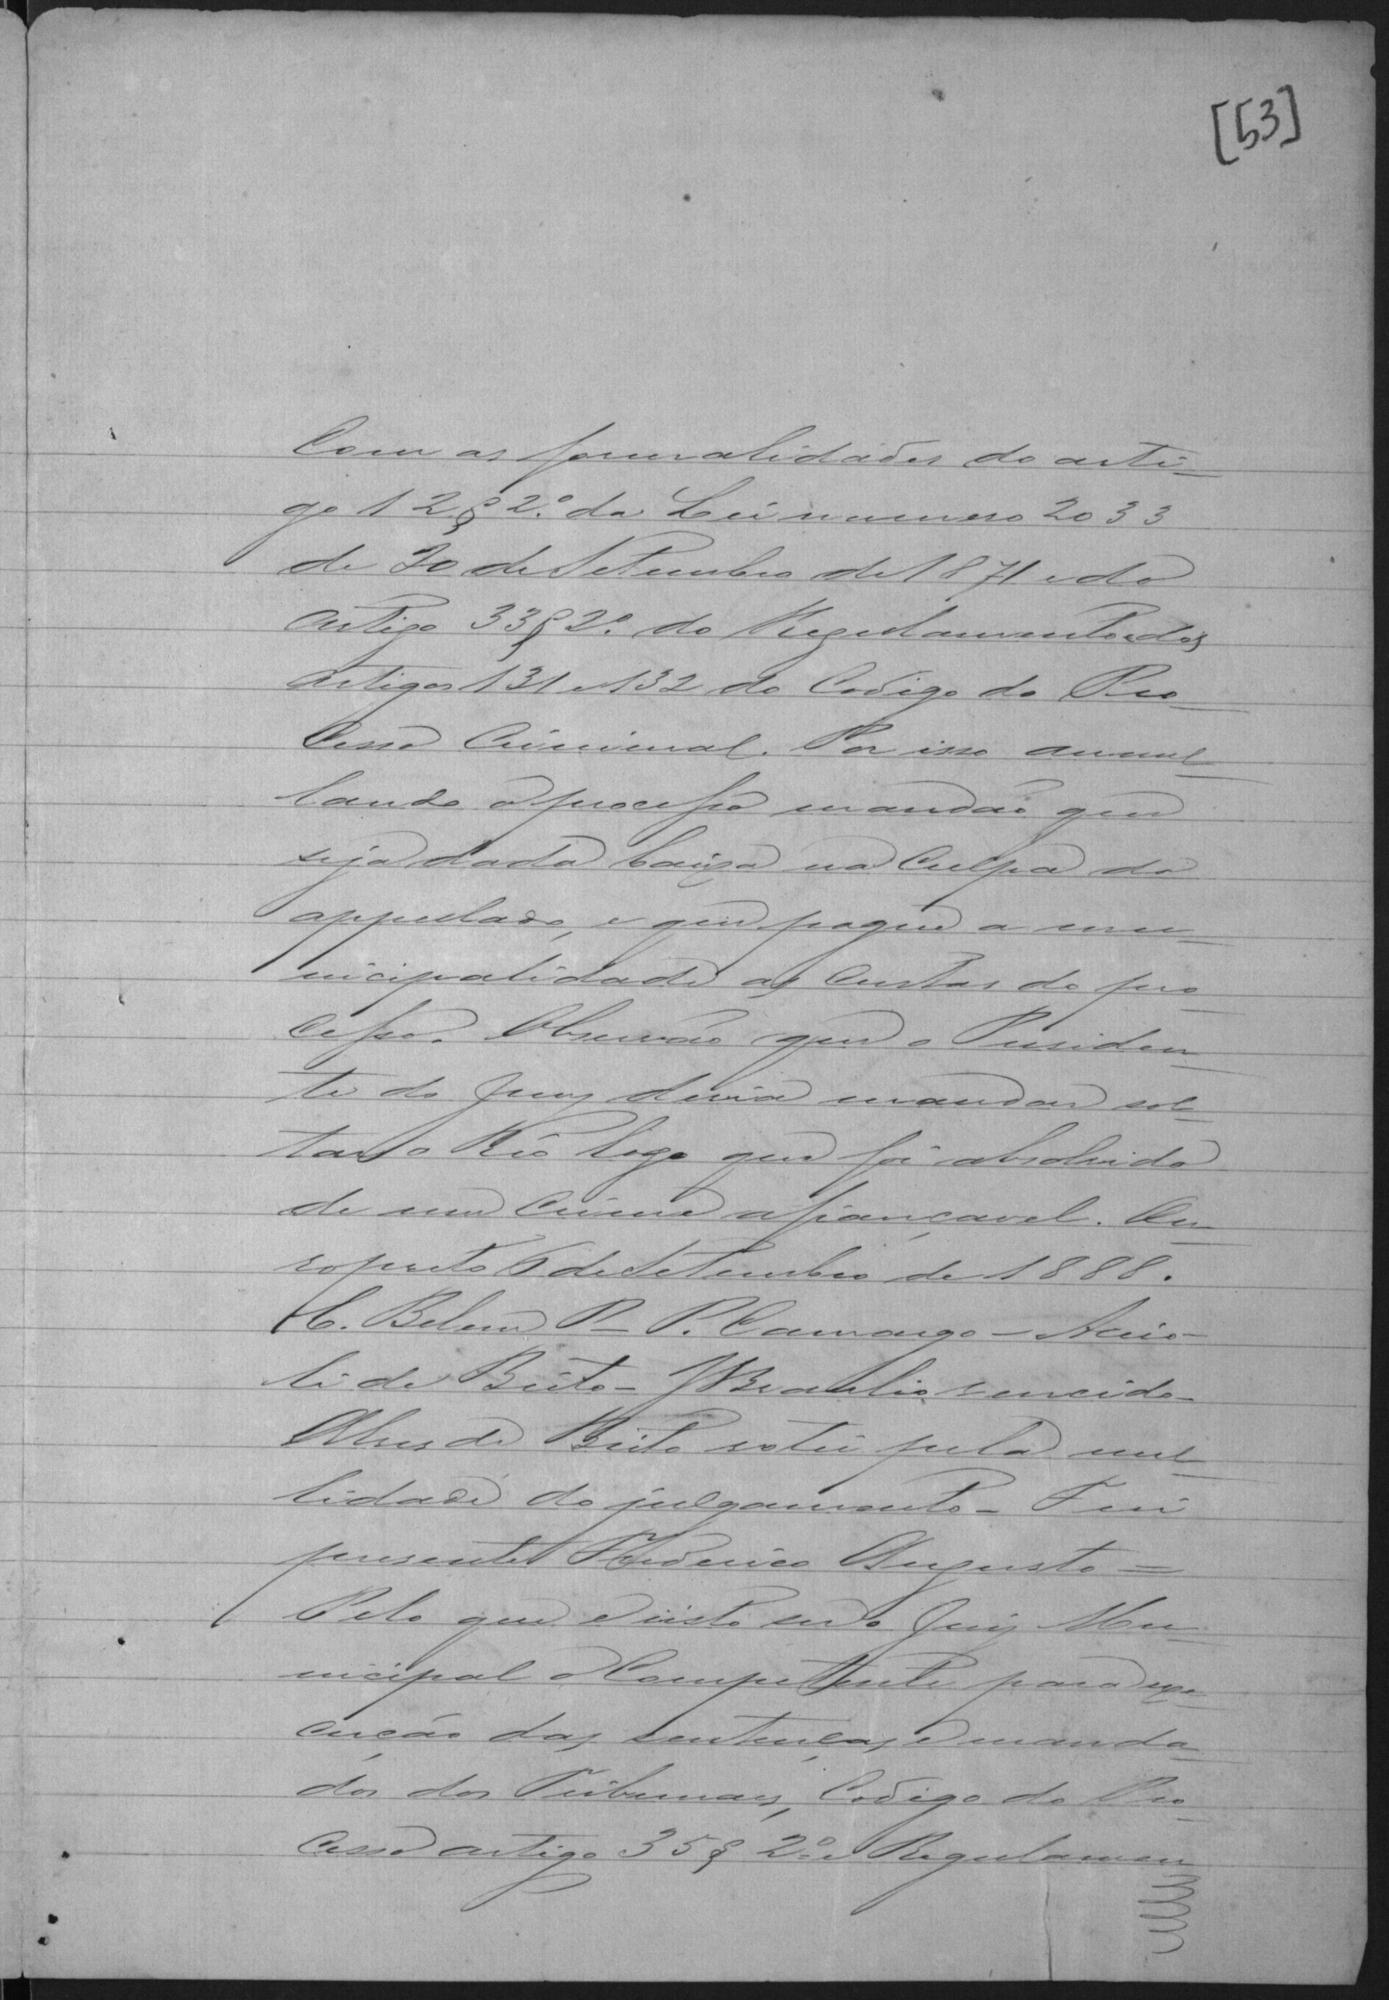 [53]
Com as formalidades do arti-
go 12 § 2º. da Lei numero 2033
de 20 de Setembro de 1871 e do
artigo 33 § 2º. do Regulamento e dos
artigos 131 e 132 do Codigo do Pro-
cesso Criminal. Por isso annul-
lando o processo mandão que
seja dada baixa na culpa do
appellado, e que pague a mu-
nicipalidade as custas do pro-
cesso. Observão que o Presiden-
te do Jury devia mandar sol-
tar o Réo logo que foi absolvido
de um crime afiançavel. Ou-
ropreto 6 de Setembro de 1888.
C. Belem P - P. Camargo - Acio-
li de Brito - J Braulio vencido -
Alves de Brito votei pela nul-
lidade do julgamento - Fui
presente Frederico Augusto =
Pelo que e visto ser o Juiz Mu-
nicipal o competente para exe-
cução das sentenças e manda-
dos dos Tribunaes, Codigo do Pro-
cesso artigo 35 § 2º e Regulamen